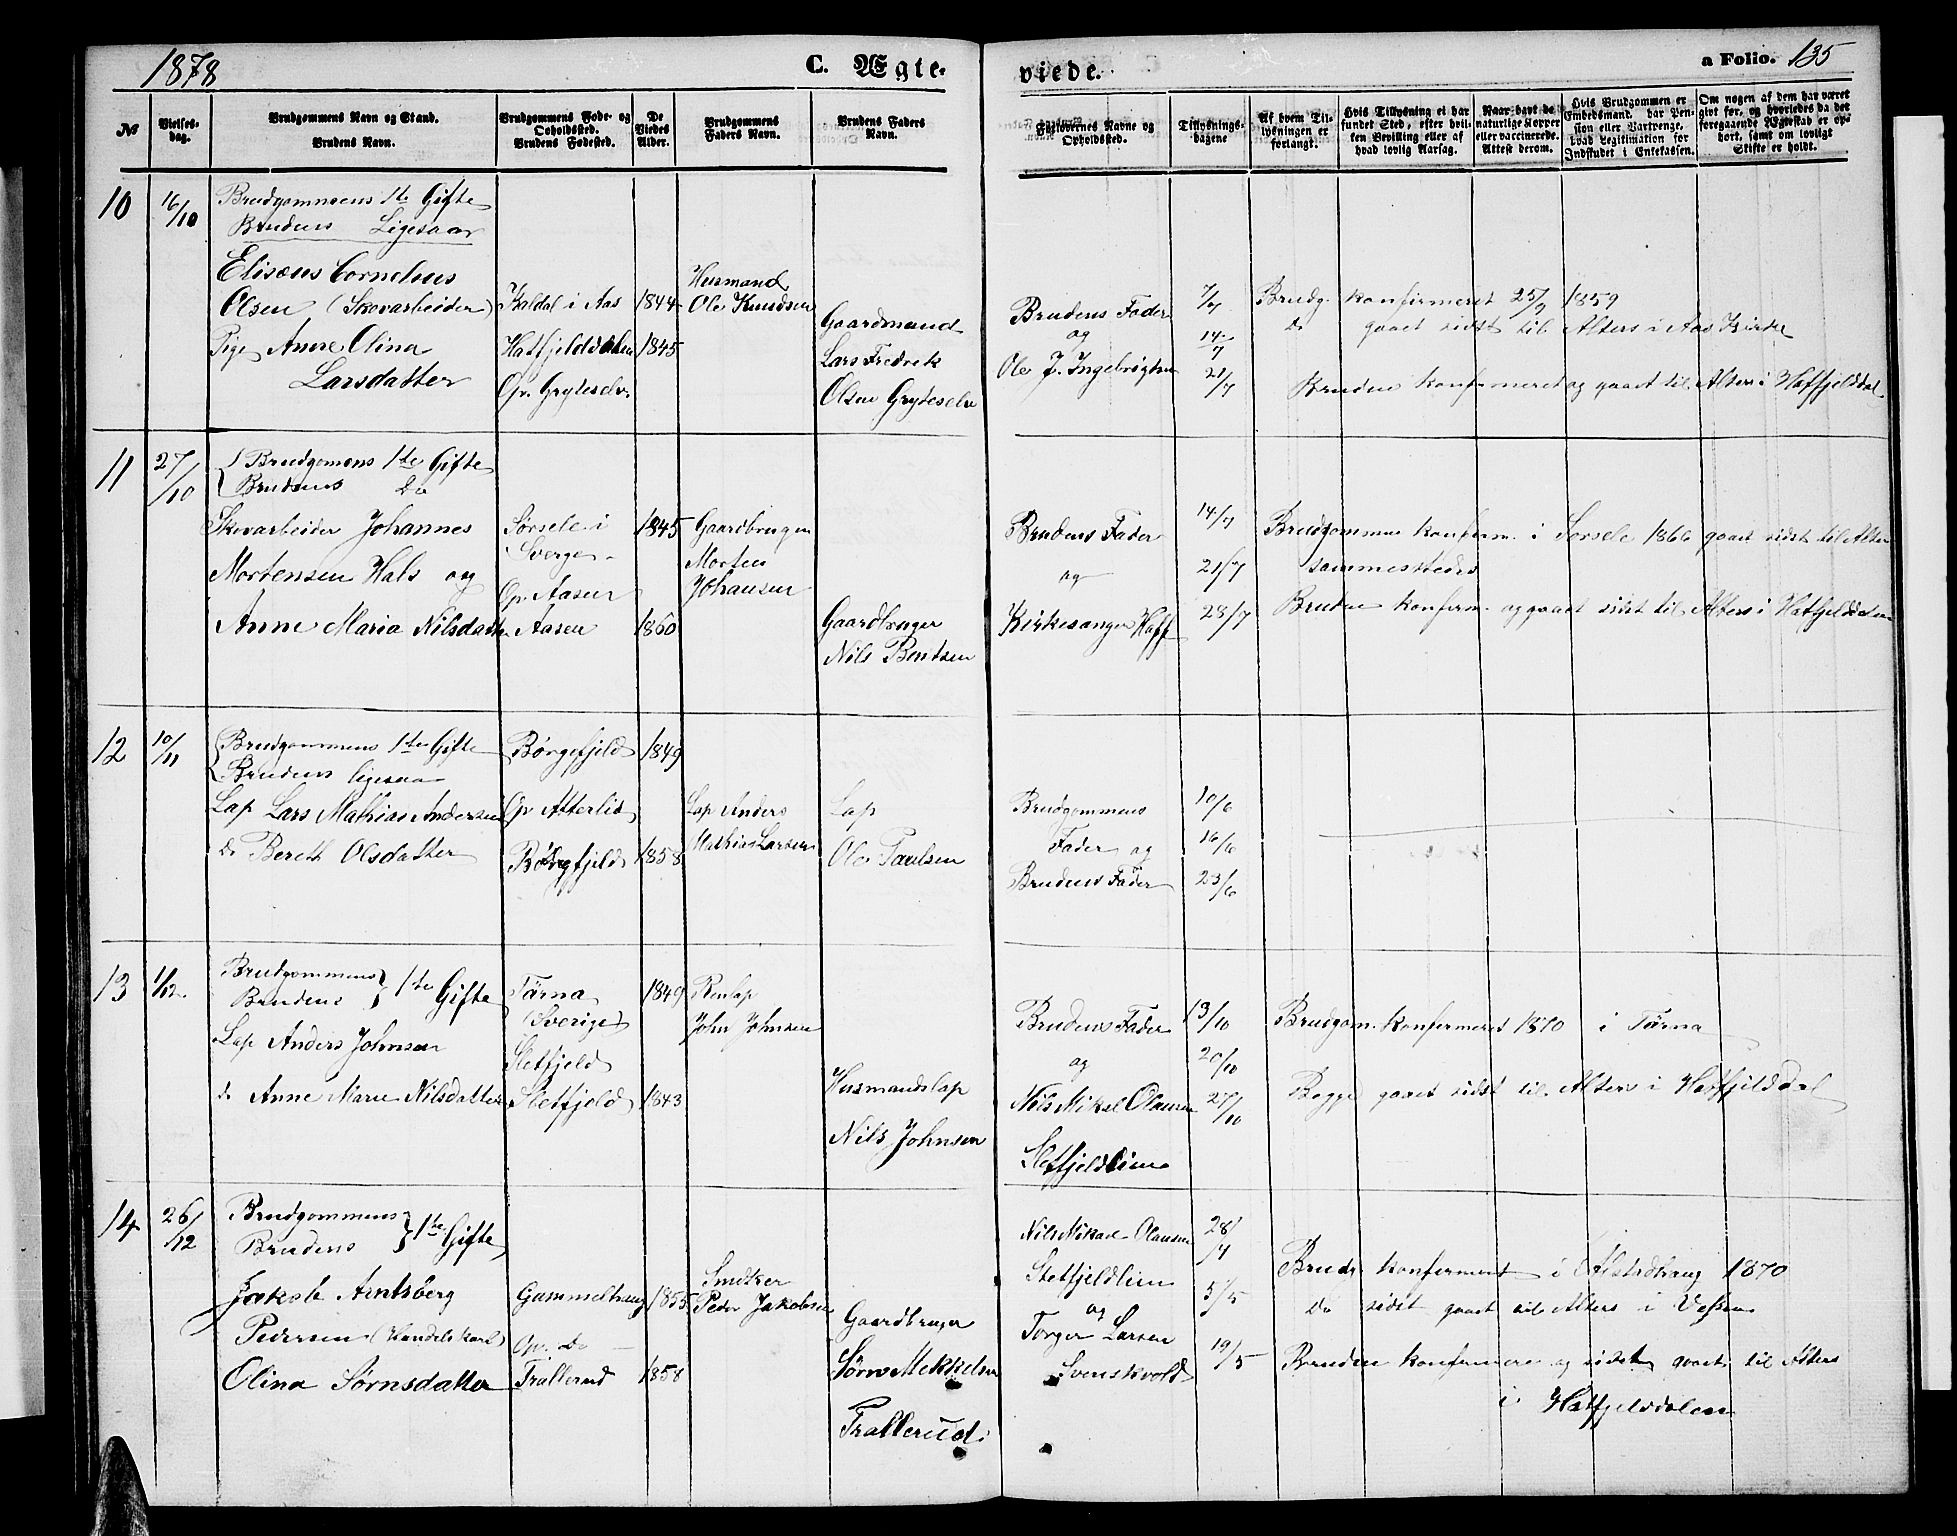 1878
C. Ægte-
viede.
a Folio. 135
No
Vielses-dag.
Brudgommens Navn og Stand.
Brudens Navn.
Brudgommens Føde- og Opholdssted.
Brudens Fødested.
De Viedes Alder.
Brudgommens Faders Navn.
Brudens Faders Navn.
Forlovernes Navne og Opholdssted.
Tillysnings-dagene
Af hvem Tillysningen er forlangt.
Hvis Tillysning ei har fundet Sted, efter hvilken Bevilling eller af hvad lovlig Aarsag.
Naar havt de naturlige Kopper eller vaccinerede. Attest derom.
Hvis Brudgommen er Embedsmand, har Pension eller Vartpenge, hvad Legitimation for Indskudet i Enkekassen.
Om nogen af dem har været givt før, og hvorledes da det foregaaende Ægteskab er ophørt, samt om lovligt Skifte er holdt.
10
16/10
Brudgommens 1te Gifte
Brudens Ligesaa
Elisæus Cornelius
Olsen (Skovarbeider)
Pige Anne Olina
Larsdatter
Kaldal i Aas
Hatfjelddalen
Op. Gryteselv.
1844
1845
Husmand
Ole Knudsen
Gaardmand
Lars Fredrik
Olsen Gryteselv
Brudens Fader
og
Ole J. Ingebrigtsen
7/7
14/7
21/7
Brudg. konfirmeret 25/9 1859
Do gaaet sidst til Alters i Aas Kirke
Bruden konfirmeret og gaaet til Alters i Hatfjelddal
11
27/10
Brudgomens 1te Gifte
Brudens Do
Skovarbeider Johannes
Mortensen Hals og
Anne Maria Nilsdatter
Sørsele i
Sverge
Op. Aasen
Aasen
1845
1860
Gaardbruger
Morten
Johansen
Gaardbruger
Nils Bentsen
Brudens Fader
og
Kirkesanger Haff
14/7
21/7
28/7
Brudgommen konfirm. i Sorsele 1866 gaaet sidst til Alters
sammesteds
Bruden konfirm. og gaaet sidst til Alters i Hatfjelddalen
12
10/11
Brudgommens 1te Gifte
Brudens ligesaa
Lap Lars Mathias Andersen
Do Bereth Olsdatter
Børgefjeld
Op. Atterlid
Børgfjeld
1849
1858
Lap Anders
Mathias Larsen
Lap
Ole Paulsen
Brudgommens
Fader og
Brudens Fader
10/6
16/6
23/6
13
1/12.
Brudgommens
Brudens } 1te Gifte
Lap Anders Johnsen
Do Anne Marie Nilsdatter
Tärna
(Sverige)
Sletfjeld
Sletfjeld
1849
1843
Renlap
John Johnsen
Husmandslap
Nils Johnsen
Brudens Fader
og
Nils Mikal Olausen
Sletfjeldlien
13/10
20/10
27/10
Brudgom. konfirmeret 1870 i Tärna
Begge gaaet sidst til Alters i Hatfjelddal
14
26/12
Brudgommens
Brudens } 1te Gifte
Jakob Arntsberg
Pedersen (Handelskarl)
Olina Sørnsdatter
Gammeltraug
Op. Do
Trallerud
1855
1858
Smeker
Peder Jakobsen
Gaardbruger
Sørn Mekkelsen
Trallerud
Nils Mikael Olausen
Sletfjeldlien
og
Torger Larsen
Svenskvold
28/4
5/5
19/5
Brudg. konfirmeret i Alstadhaug 1870
Do sidst gaaet til Alters i Vefsen
Bruden konfirmere og sidst gaaet til Alters
i Hatfjelddalen